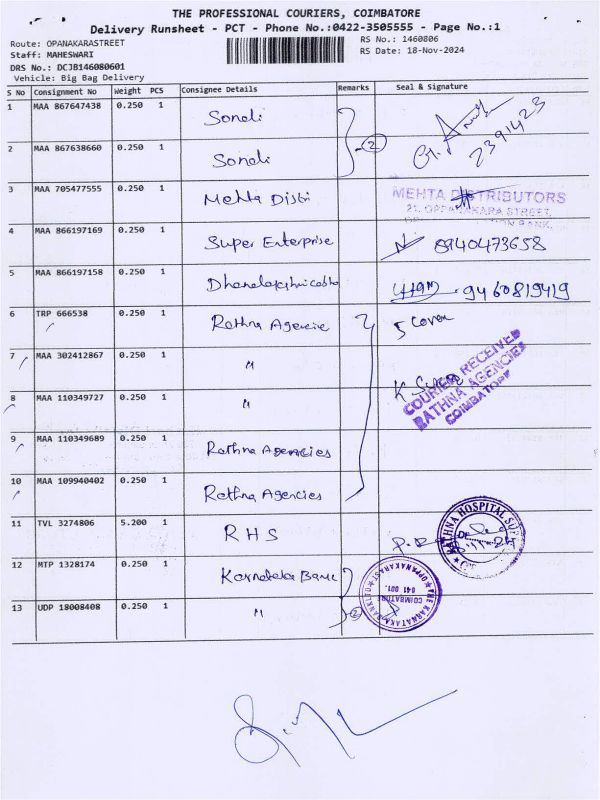 THE PROFESSIONAL COURIERS, COIMBATORE
Delivery Runsheet - PCT - Phone No.:0422-3505555 - Page No.:1
Route: OPANAKARASTREET
RS No.: 1460806
Staff: MAHESWARI
RS Date: 18-Nov-2024
DRS No.: DCJB146080601
Vehicle: Big Bag Delivery
S No Consignment No Weight PCS Consignee Details Remarks Seal & Signature
1 MAA 867647438 0.250 1 Sonali
2391423
2 MAA 867638660 0.250 1 Sonali 2
3 MAA 705477555 0.250 1 Mehta Distri MEHTA DISTRIBUTORS
21, OPPANAKARA STREET,
BANK,
4 MAA 866197169 0.250 1 Super Enterprise 8940473658
5 MAA 866197158 0.250 1 9460819419
6 TRP 666538 0.250 1 Rathna Agencie 5 Cover
7 MAA 302412867 0.250 1 "
COURIER RECEIVED
RATHNA AGENCIES
COIMBATORE
8 MAA 110349727 0.250 1 "
9 MAA 110349689 0.250 1 Rathna Agencies
10 MAA 109940402 0.250 1 Rathna Agencies
11 TVL 3274806 5.200 1 RHS
RATHNA HOSPITAL
12 MTP 1328174 0.250 1 Karnataka Bank
THE KARNATAKA BANK
OPPANAKARA ST
COIMBATORE
641 001.
13 UDP 18008408 0.250 1 " 2